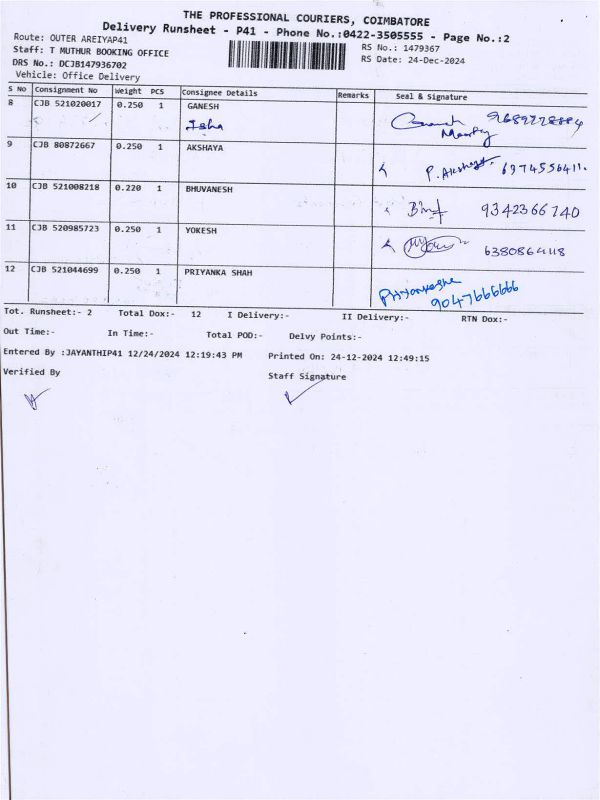 THE PROFESSIONAL COURIERS, COIMBATORE
Delivery Runsheet - P41 - Phone No.:0422-3505555 - Page No.:2
Route: OUTER AREIYAP41
RS No.: 1479367
Staff: T MUTHUR BOOKING OFFICE
RS Date: 24-Dec-2024
DRS No.: DCJB147936702
Vehicle: Office Delivery
S No Consignment No Weight PCS Consignee Details Remarks Seal & Signature
8 CJB 521020017 0.250 1 GANESH
Isha
9 CJB 80872667 0.250 1 AKSHAYA
P. Akshaya
10 CJB 521008218 0.220 1 BHUVANESH
9342366740
11 CJB 520985723 0.250 1 YOKESH
12 CJB 521044699 0.250 1 PRIYANKA SHAH
9047666666
Tot. Runsheet:- 2 Total Dox:- 12 I Delivery:- II Delivery:- RTN Dox:-
Out Time:- In Time:- Total POD:- Delvy Points:-
Entered By :JAYANTHIP41 12/24/2024 12:19:43 PM Printed On: 24-12-2024 12:49:15
Verified By Staff Signature